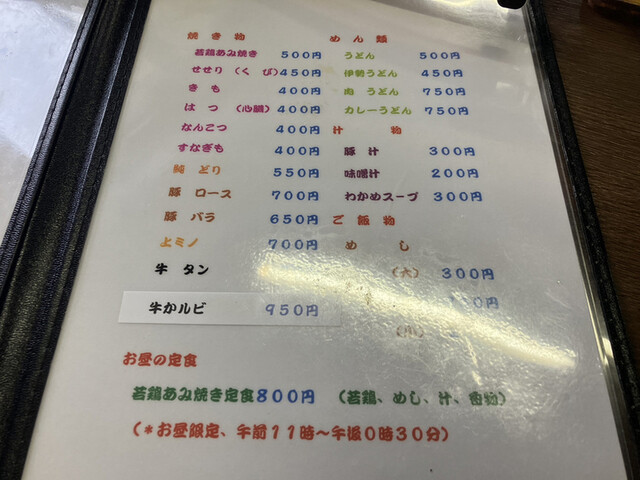 焼き物
若鶏あみ焼き 500円
せせり（くび）450円
きも 400円
はつ（心臓）400円
なんこつ 400円
すなぎも 400円
純どり 550円
豚ロース 700円
豚バラ 650円
上ミノ 700円
牛タン
牛カルビ 950円
めん類
うどん 500円
伊勢うどん 450円
肉うどん 750円
カレーうどん 750円
汁物
豚汁 300円
味噌汁 200円
わかめスープ 300円
ご飯物
めし
（大） 300円
円
（小）
お昼の定食
若鶏あみ焼き定食800円 （若鶏、めし、汁、香物）
（*お昼限定、午前11時～午後0時30分）